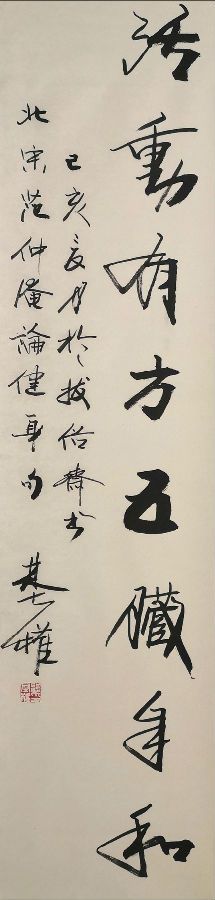 活動有方五臟自和
己亥夏月於拔俗齋書
北宋范仲淹論健身句